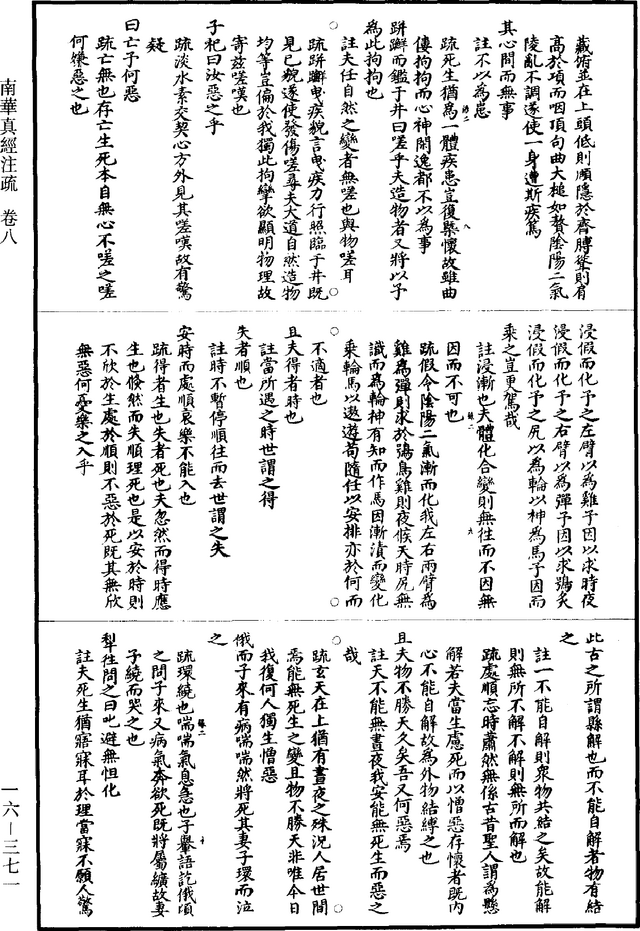 南華真經注疏　卷八
一六—三七一
藏腑並在上頭低則頤隱於齊膊聳則肩
高於項而咽頂句曲大槌如贅陰陽二氣
陵亂不調遂使一身遭斯疾篤
其心閒而無事
註不以為患
疏死生猶為一體疾患豈復槩懷故雖曲
僂拘拘而心神閒逸都不以為事
跰𨇤而鑑于井曰嗟乎夫造物者又將以予
為此拘拘也
註夫任自然之變者無嗟也與物嗟耳
疏跰𨇤曳疾貌言曳疾力行照臨于井既
見己貌遂使發傷嗟尋夫大道自然造物
均等豈偏於我獨此拘攣欲顯明物理故
寄茲嗟嘆也
子祀曰汝惡之乎
疏淡水素交契心方外見其嗟嘆故有驚
疑
曰亡予何惡
疏亡無也存亡生死本自無心不嗟之嗟
何嫌惡之也
浸假而化予之左臂以為雞予因以求時夜
浸假而化予之右臂以為彈予因以求鴞炙
浸假而化予之尻以為輪以神為馬予因而
乘之豈更駕哉
註浸漸也夫體化合變則無往而不因無
因而不可也
疏假令陰陽二氣漸而化我左右兩臂為
雞為彈則求於鴞鳥雞則夜候天時尻無
識而為輪神有知而作馬因漸漬而變化
乘輪馬以遨遊苟隨任以安排亦於何而
不適者也
且夫得者時也
註當所遇之時世謂之得
失者順也
註時不暫停順往而去世謂之失
安時而處順哀樂不能入也
疏得者生也失者死也夫忽然而得時應
生也倏然而失順理死也是以安於時則
不欣於生處於順則不惡於死既其無欣
無惡何憂樂之入乎
此古之所謂縣解也而不能自解者物有結
之
註一不能自解則衆物共結之矣故能解
則無所不解不解則無所而解也
疏處順忘時蕭然無係古昔聖人謂為懸
解若夫當生慮死而以憎惡存懷者既內
心不能自解故為外物結縛之也
且夫物不勝天久矣吾又何惡焉
註天不能無晝夜我安能無死生而惡之
哉
疏玄天在上猶有晝夜之殊況人居世間
焉能無死生之變且物不勝天非唯今日
我復何人獨生憎惡
俄而子來有病喘喘然將死其妻子環而泣
之
疏環繞也喘喘氣息急也子轝語訖俄頃
之間子來又病氣奔欲死既將屬纊故妻
子繞而哭之也
犁往問之曰叱避無怛化
註夫死生猶寤寐耳於理當寐不願人驚